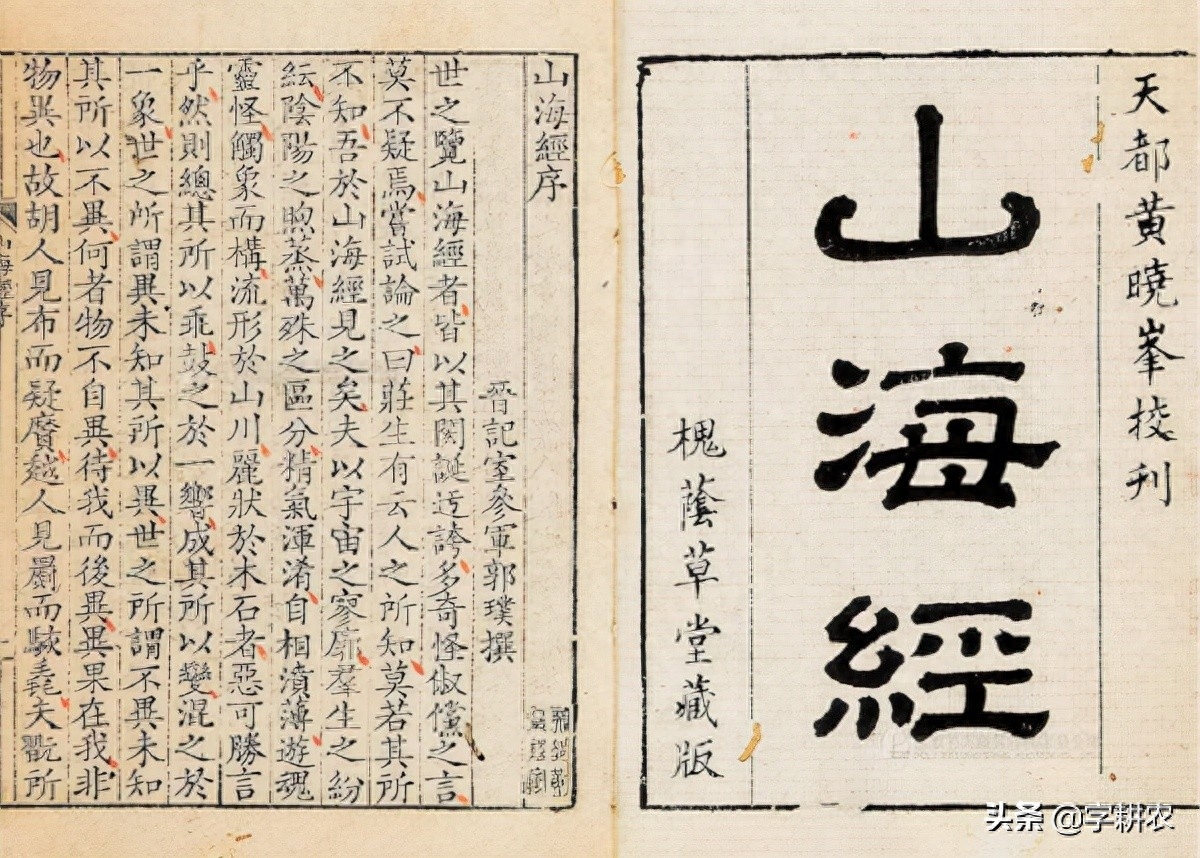 天都黄曉峯挍刊
山海經
槐蔭草堂藏版
山海經序
晉記室參軍郭璞撰
世之覽山海經者皆以其閎誕迂誇多奇怪俶儻之言
莫不疑焉嘗試論之曰莊生有云人之所知莫若其所
不知吾於山海經見之矣夫以宇宙之寥廓羣生之紛
紜陰陽之煦蒸萬殊之區分精氣渾淆自相濆薄遊魂
靈怪觸象而構流形於山川麗狀於木石者惡可勝言
乎然則總其所以乖鼓之於一響成其所以變混之於
一象世之所謂異未知其所以異世之所謂不異未知
其所以不異何者物不自異待我而後異異果在我非
物異也故胡人見布而疑黂越人見罽而駭毳夫翫所
山海經序
头条 @字耕农